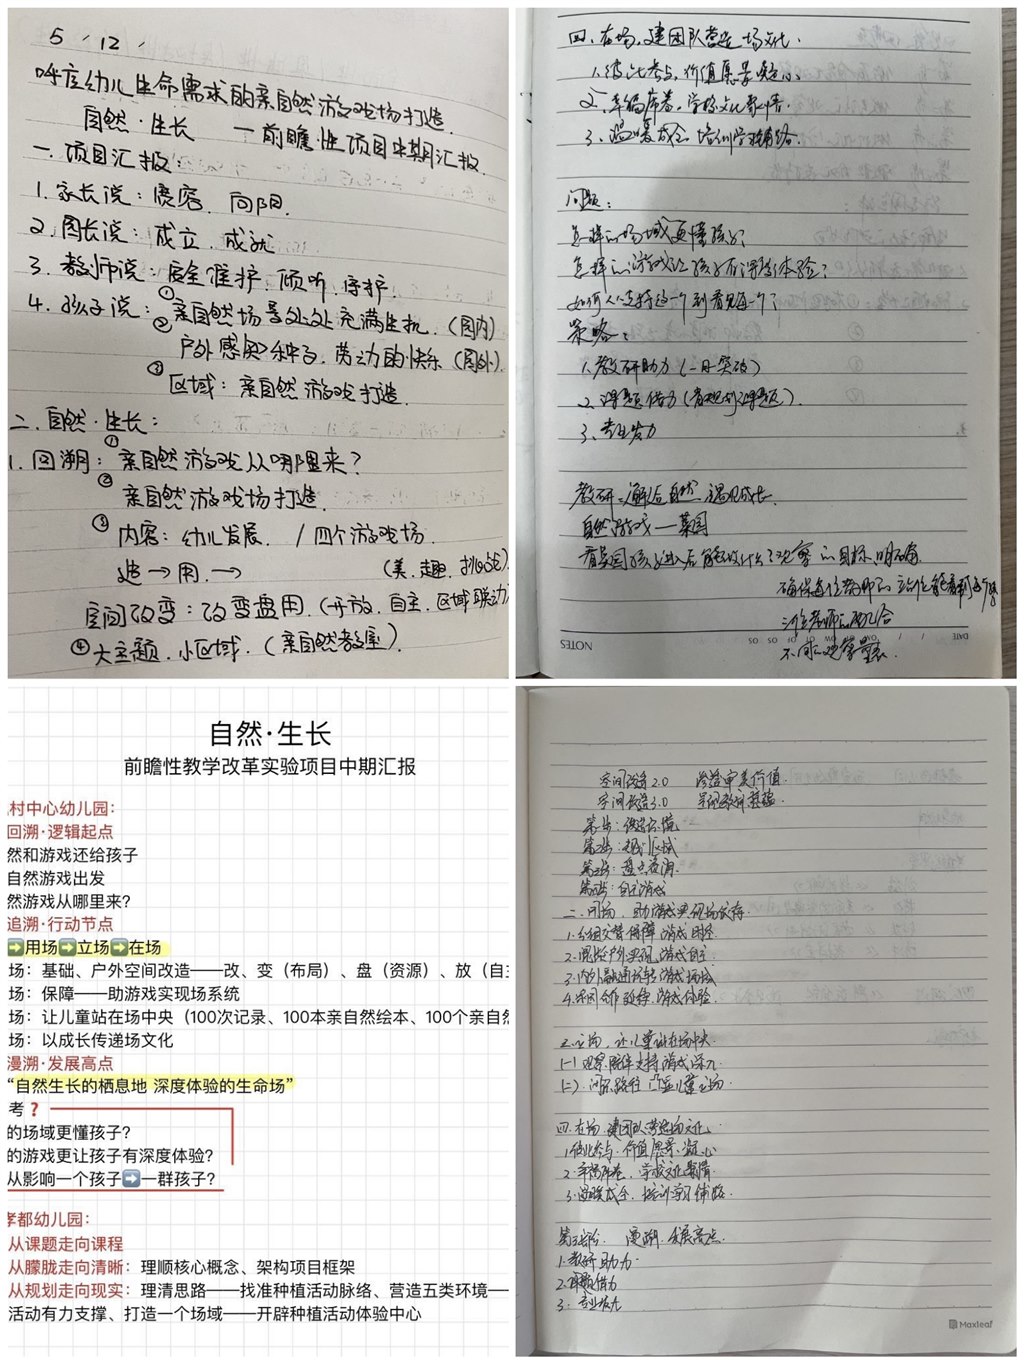 5 / 12 /
呼应幼儿生命需求的亲自然游戏场打造.
自然·生长 一前瞻性项目中期汇报
一. 项目汇报:
1. 家长说: 宽容. 向阳.
2. 园长说: 成立. 成就
3. 教师说: 安全维护. 倾听. 停护.
4. 孩子说: ①亲自然场景处处充满生机. (园内)
② 户外感知种子, 劳动的快乐 (园外).
③ 区域: 亲自然游戏打造.
二. 自然·生长:
1. 回溯: ①亲自然游戏从哪里来?
② 亲自然游戏场打造
③ 内容: 幼儿发展. / 四个游戏场.
造→用.→ (美. 趣. 挑战)
空间改变: 改变盘用. (开放. 自主. 区域联动)
④大主题. 小区域. (亲自然教室).
四、在场,建团队营造场文化.
1.彼此参与,价值愿景凝心
2.幸福席卷,学校文化聚情.
3.温暖成全 培训学习铺路.
问题:
怎样的场域更懂孩子?
怎样的游戏让孩子有深刻体验?
如何从支持这一个到看见每一个?
策略:
1.教研助力(一月突破)
2.课题借力(省规划课题).
3.专业发力
教研:邂逅自然 遇见成长
自然游戏——菜园
看菜园孩子进入后能做什么?观察的目标明确.
确保每位教师的站位能看到
三位老师的配合
不同的观察量表.
DATE
NOTES
自然·生长
前瞻性教学改革实验项目中期汇报
村中心幼儿园:
回溯·逻辑起点
然和游戏还给孩子
自然游戏出发
然游戏从哪里来?
追溯·行动节点
➡用场➡立场➡在场
场: 基础、户外空间改造——改、变（布局）、盘（资源）、放（自
场: 保障——助游戏实现场系统
场: 让儿童站在场中央（100次记录、100本亲自然绘本、100个亲自然
场: 以成长传递场文化
漫溯·发展高点
“自然生长的栖息地 深度体验的生命场”
考？
的场域更懂孩子?
的游戏更让孩子有深度体验?
从影响一个孩子➡一群孩子?
孝都幼儿园:
从课题走向课程
从朦胧走向清晰: 理顺核心概念、架构项目框架
从规划走向现实: 理清思路——找准种植活动脉络、营造五类环境——
活动有力支撑、打造一个场域——开辟种植活动体验中心
空间改造2.0 渗透审美价值.
空间改造3.0
第一步:
第二步: 规划区域
第三步: 盘点资源
第四步: 自主游戏
二、用场, 助游戏实现场依存.
1.分组交替保障 游戏时空
2.混龄户外实现 游戏自主
3.内外融通玩转 游戏场域
4.家园合作延伸 游戏体验
三.立场, 让儿童站在场中央
(一) 观察陪伴支持游戏深入
(二) 问题路径 凸显儿童立场.
四.在场,建团队营造场文化.
1.彼此参与, 价值愿景, 凝心
2.幸福席卷, 学校文化聚情
3.温暖成全, 培训学习铺路.
第三部分. 漫溯.发展高点.
1.教研助力
2.课题借力
3.专业发力
Maxleaf